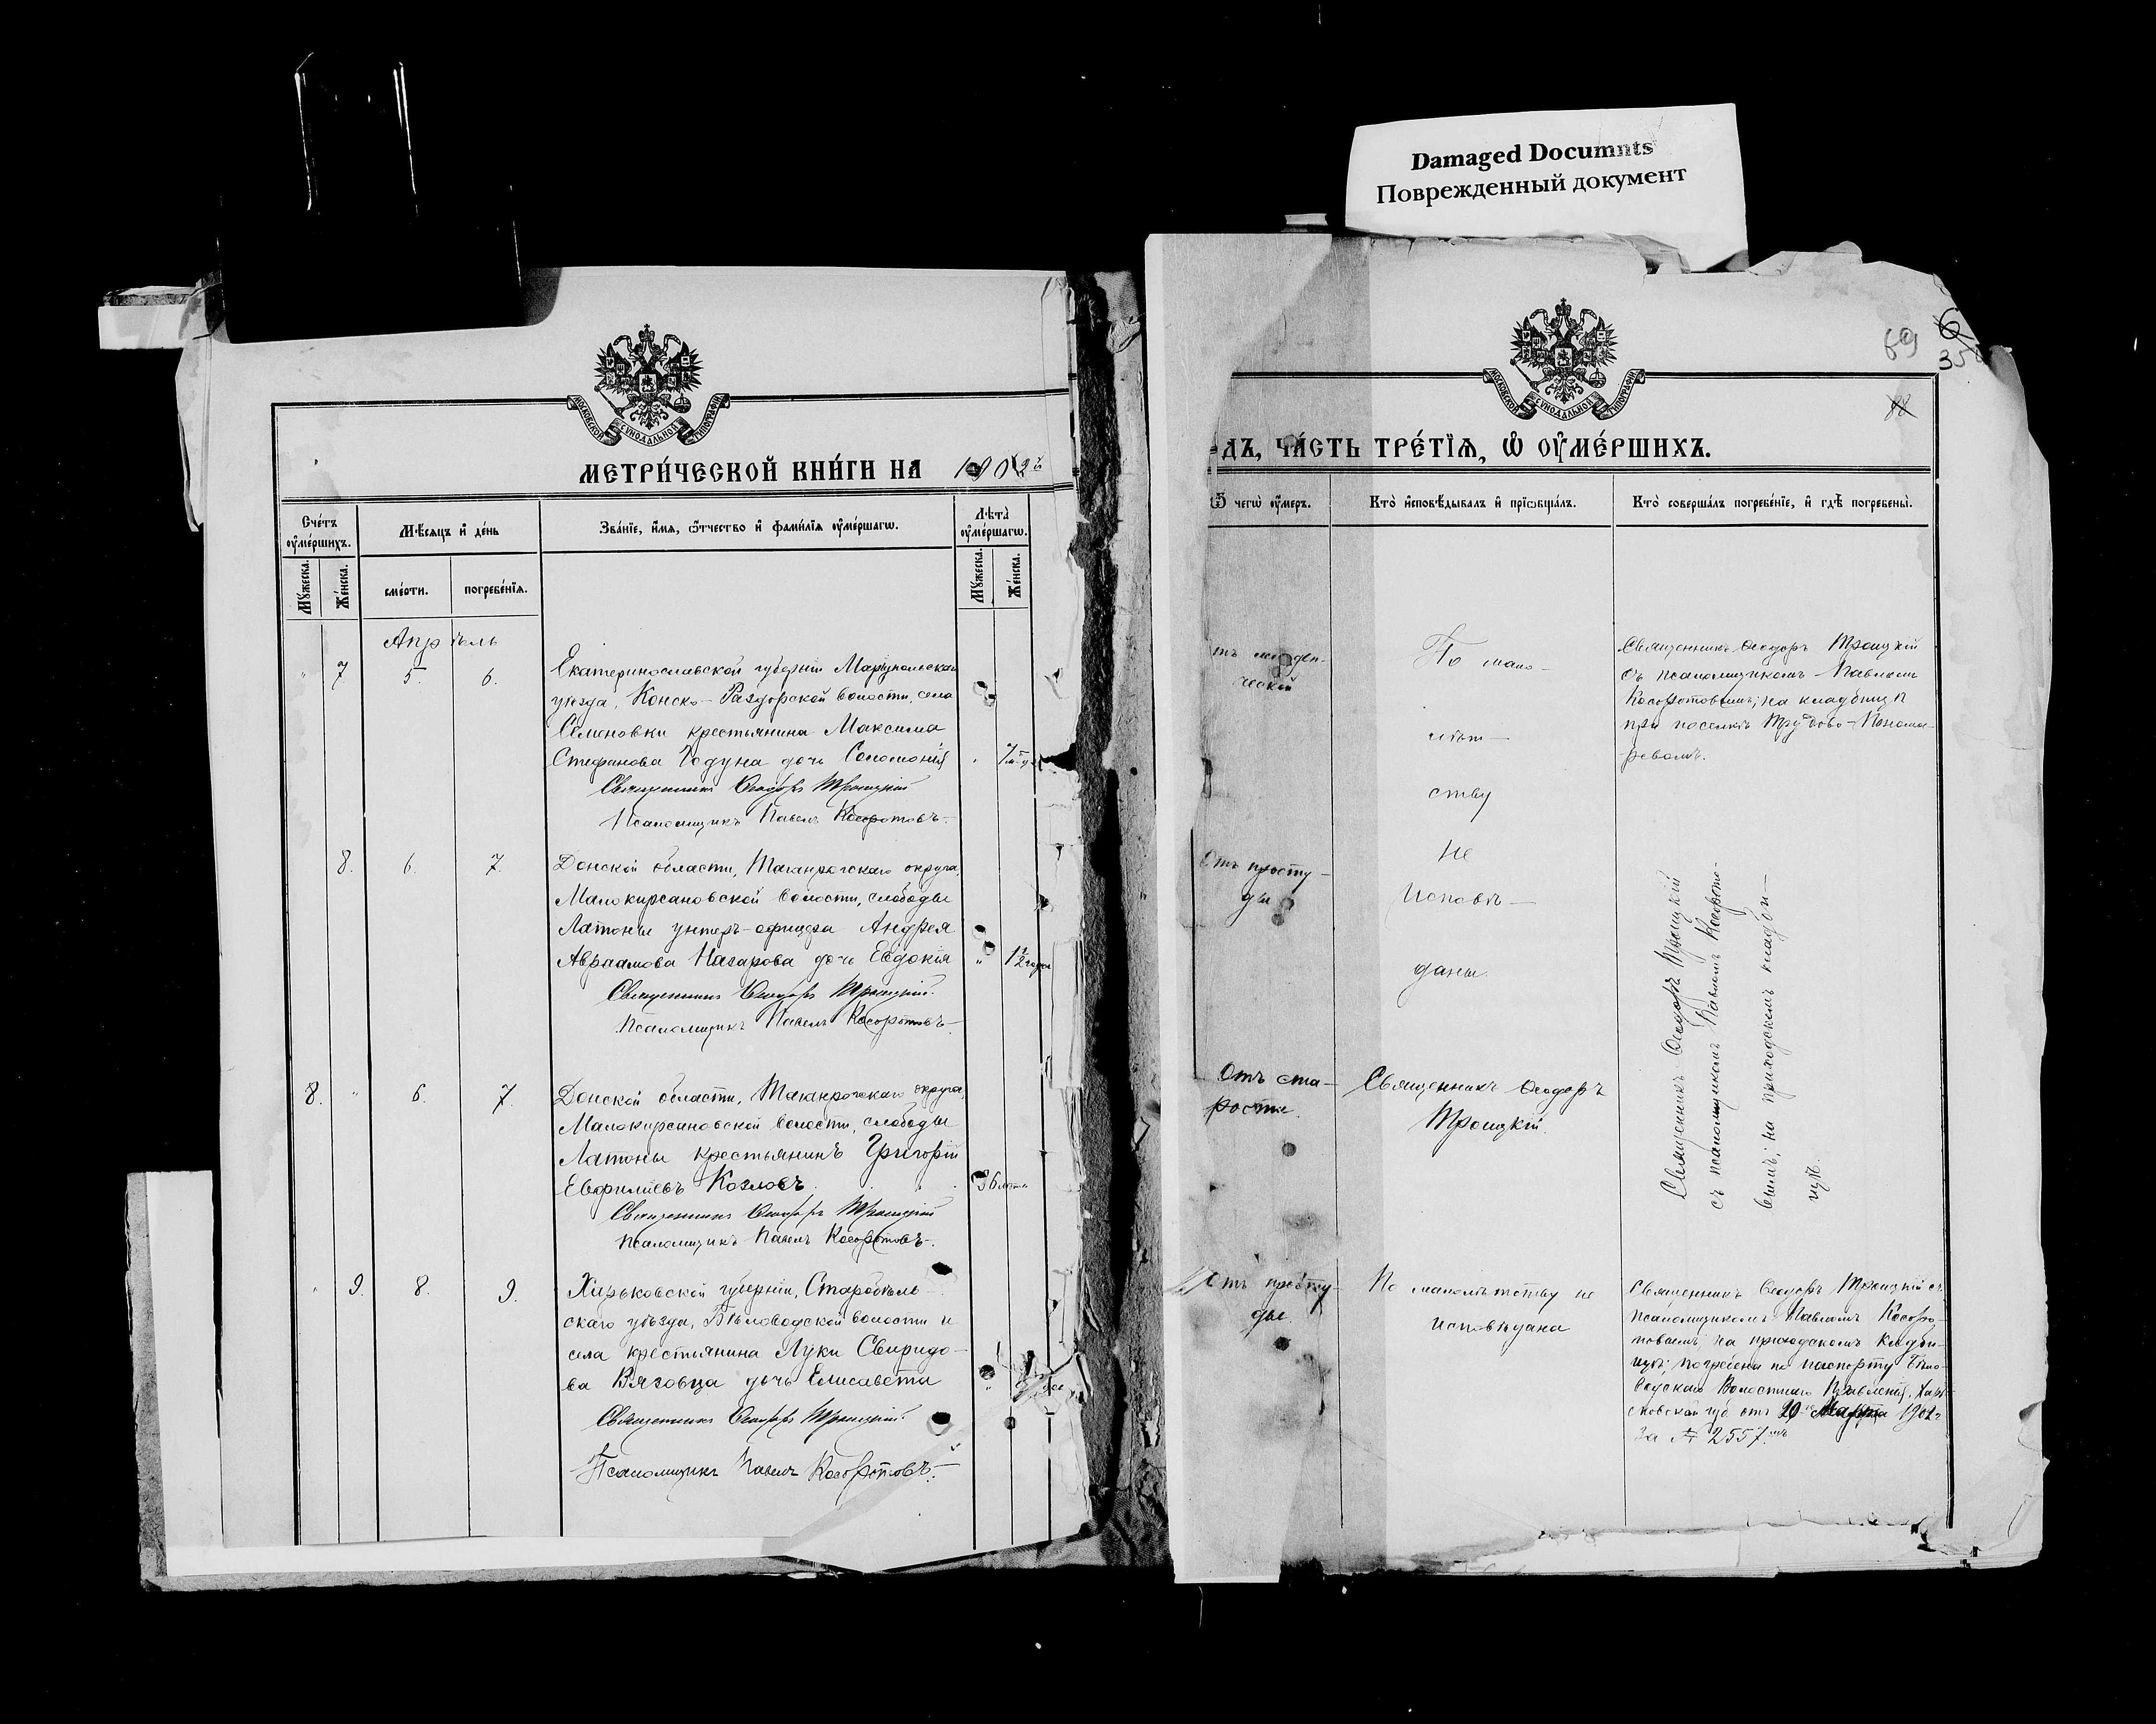 Damaged Documnts
Поврежденный документ
69
35
88
МОСКОВСКОЙ СУНОДАЛЬНОЙ ТИПОГРАФІИ
МЕТРИ́ЧЕСКОЙ КНИ́ГИ НА 1902й
Сче́тъ оу҆ме́ршихъ.
Мѣ́сяцъ и҆ де́нь
Зва́нїе, и҆́мя, ѻ҆́тчество и҆ фами́лїя оу҆ме́ршагѡ.
Лѣ́та оу҆ме́ршагѡ.
Мꙋ́жеска.
Же́нска.
сме́рти.
погребе́нїя.
Мꙋ́жеска.
Же́нска.
Апрѣль
" 7 5. 6.
Екатеринославской губерніи Маріупольскаго
уѣзда, Конско-Раздорской волости, села
Семеновки крестьянина Максима
Стефанова Годуна дочь Соломонія
Священникъ Ѳеодоръ Троицкій
Псаломщикъ Павелъ Косоротовъ.
8. 6. 7.
Донской области, Таганрогскаго округа,
Малокирсановской волости, слободы
Латоны унтеръ-офицера Андрея
Авраамова Назарова дочь Евдокія " 1½ года
Священникъ Ѳеодоръ Троицкій.
Псаломщикъ Павелъ Косоротовъ
8. " 6. 7.
Донской области, Таганрогскаго округа,
Малокирсановской волости, слободы
Латоны крестьянинъ Григорій
Евфиміевъ Козловъ.
Священникъ Ѳеодоръ Троицкій
Псаломщикъ Павелъ Косоротовъ.
" 9. 8. 9.
Харьковской губерніи, Старобѣль-
скаго уѣзда, Бѣловодской волости и
села крестьянина Луки Свиридо-
ва Вяговца дочь Елисавета
Священникъ Ѳеодоръ Троицкій.
Псаломщикъ Павелъ Косоротовъ.
МОСКОВСКОЙ СУНОДАЛЬНОЙ ТИПОГРАФІИ
ДЪ, ЧА́СТЬ ТРЕ́ТЇЯ, Ѡ҆ ОУ҆МЕ́РШИХЪ.
Ѿ чегѡ̀ оу҆́меръ.
Кто̀ и҆сповѣ́дывалъ и҆ прїѡбща́лъ.
Кто̀ соверша́лъ погребе́нїе, и҆ гдѣ̀ погребены̀.
ческой
По мало-
лѣт-
ству
не
исповѣ-
даны.
Священникъ Ѳеодоръ Троицкій
съ псаломщикомъ Павломъ
Косоротовымъ; на кладбищѣ
при поселкѣ Трудово-Понома-
ревомъ.
Отъ просту-
ды
Отъ ста-
рости.
Священникъ Ѳеодоръ
Троицкій.
Священникъ Ѳеодоръ Троицкій
съ псаломщикомъ Павломъ Косорото-
вымъ; на приходскомъ кладби-
щѣ.
Отъ просту-
ды.
По малолѣтству не
исповѣдана
Священникъ Ѳеодоръ Троицкій съ
псаломщикомъ Павломъ Косоро-
товымъ; на приходскомъ кладби-
щѣ: погребена по паспорту Бѣло-
водскаго Волостного Правленія, Харь-
ковской губ. отъ 20го Марта 1902 г.
за № 2557мъ